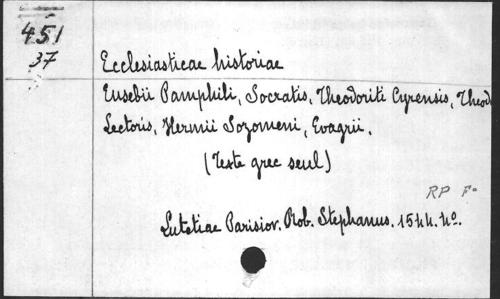 451
37
Ecclesiasticae historiae
Eusebii Pamphili, Socratis, Theodoriti Cyrensis, Theod
Lectoris, Hermii Sozomeni, Evagrii.
(Texte grec seul)
RP F°
Lutetiae Parisior. Rob. Stephanus. 1544. 4°.